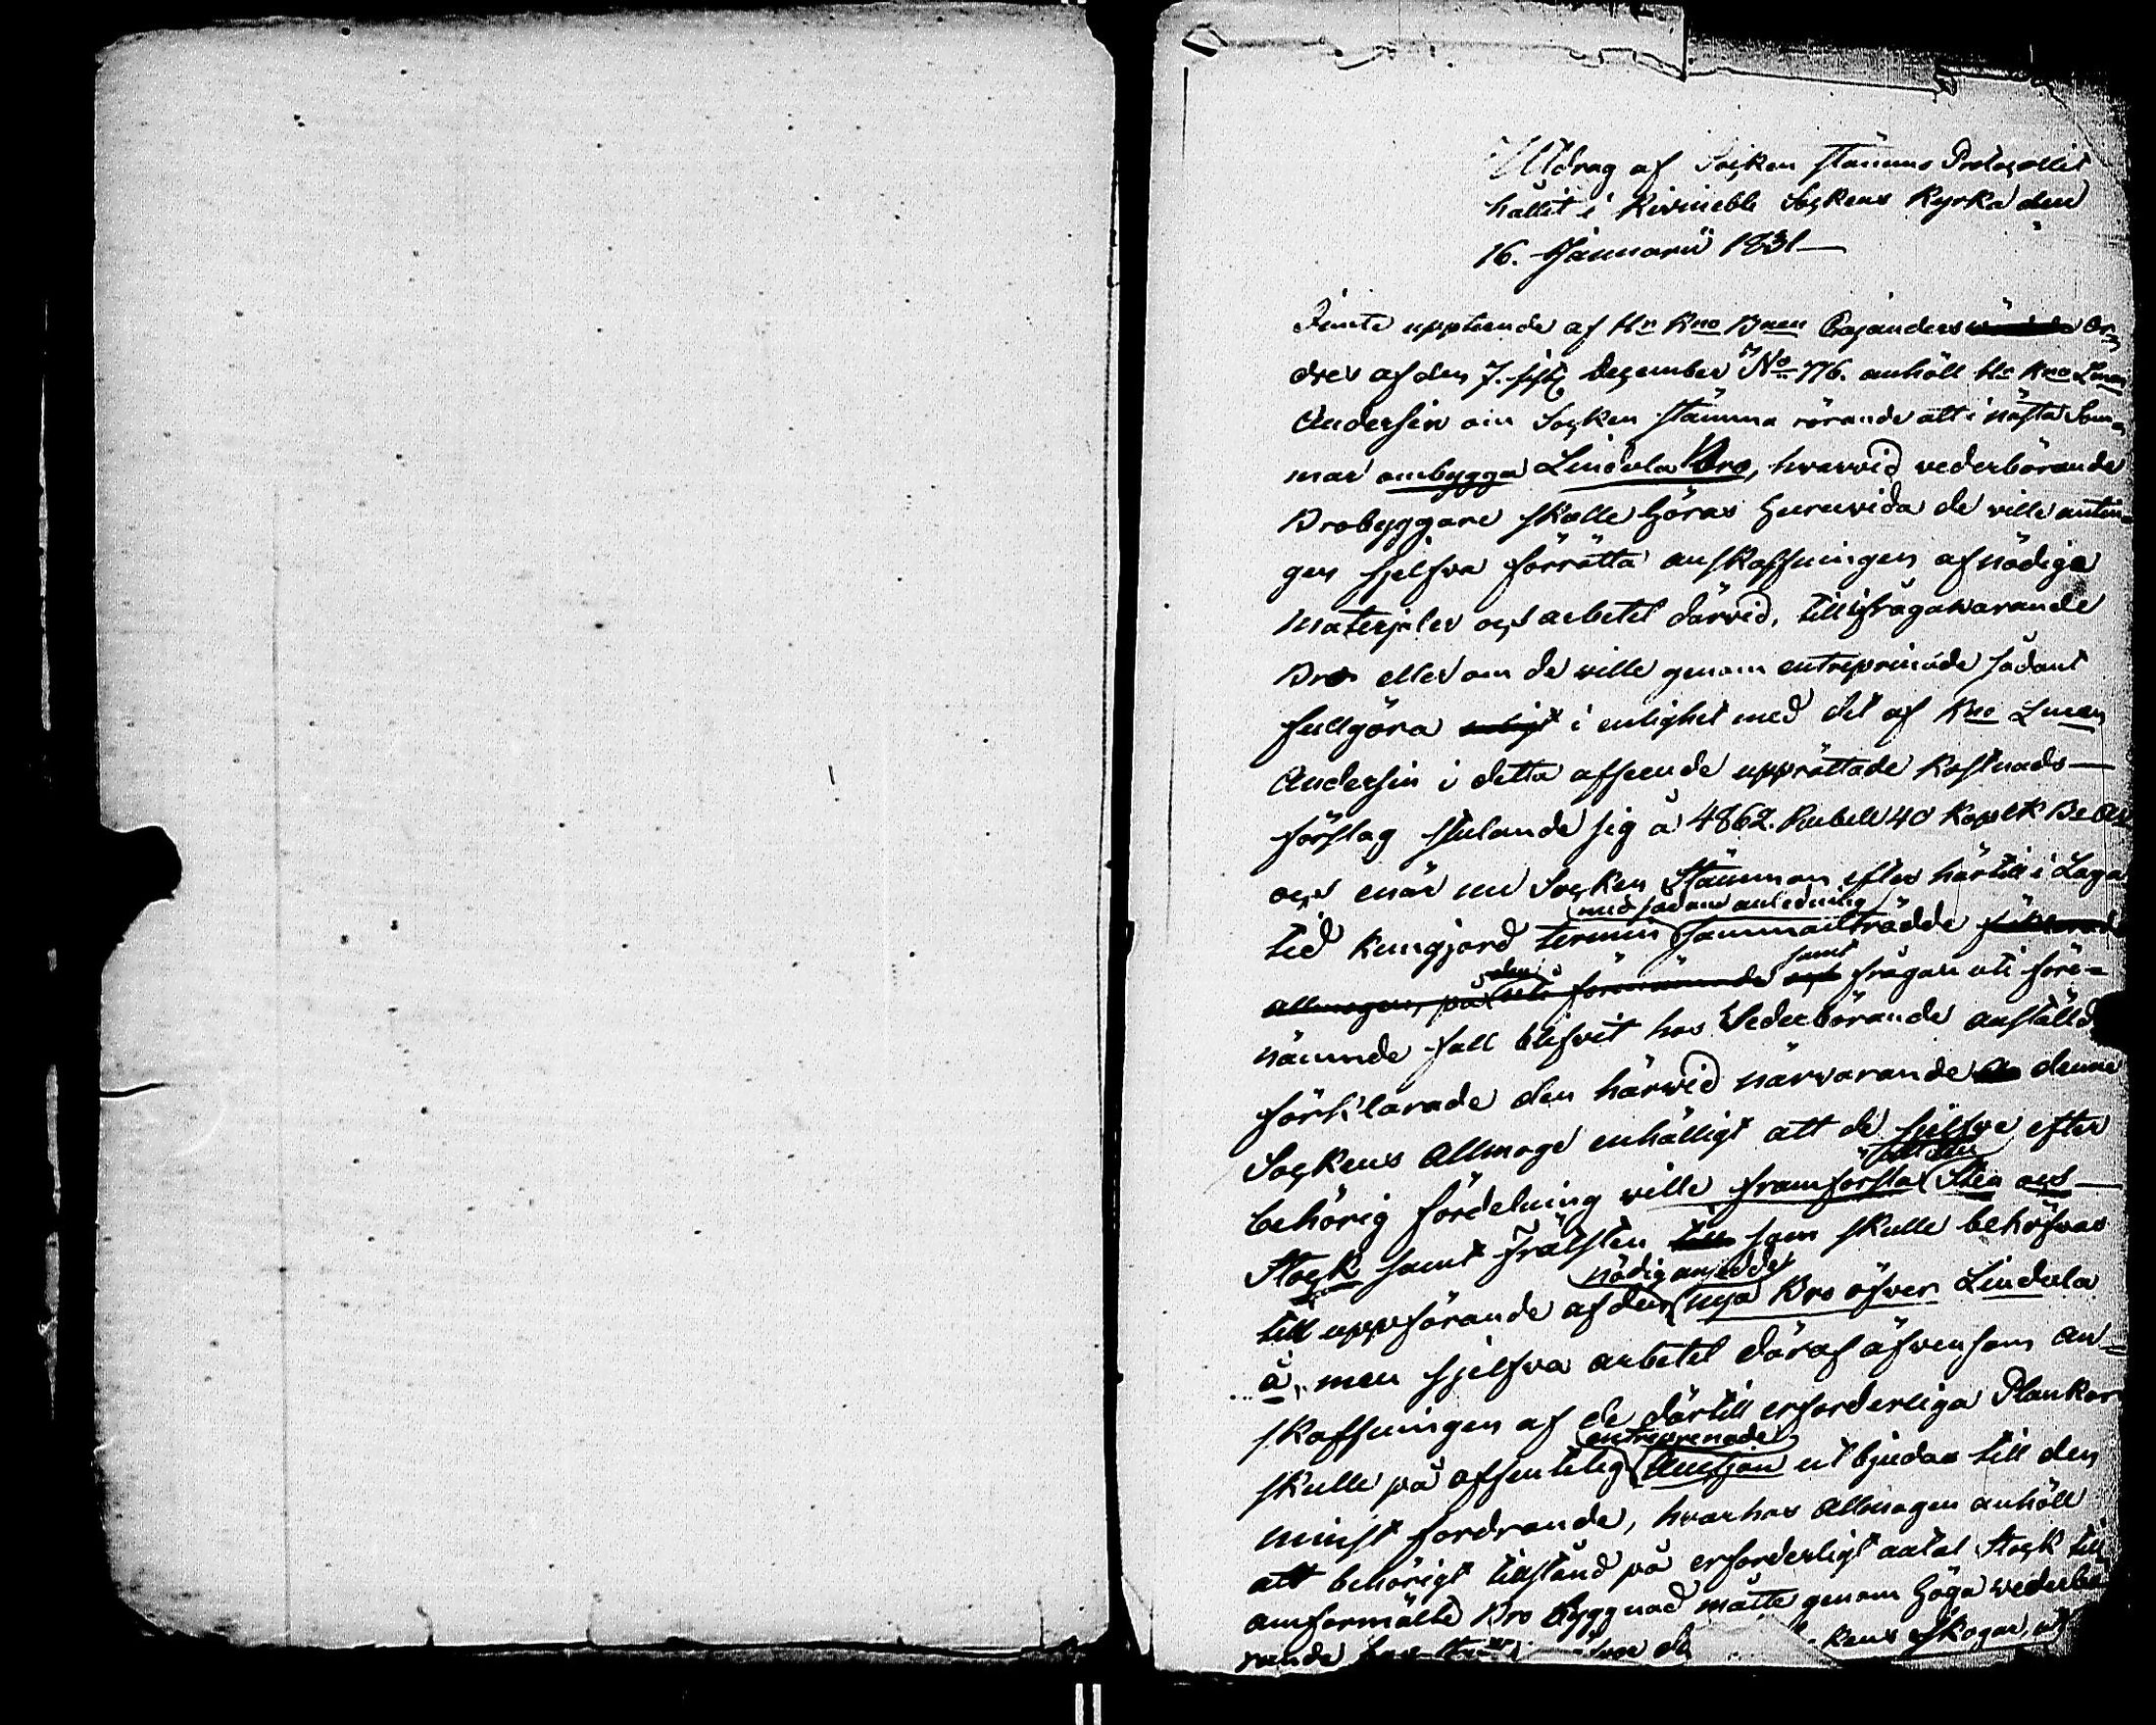 Utdrag af Socken stämmo Protocollet
hållit i Kivinebb Sockens Kyrka den
16. Januarii 1831
Jemte uppteende af Hr Kno Cajanders Or-
dres af den 7. sistl. December No 776. anhöll Hr Kno Lman
Andersin om Socken stämma rörande att i nästa Som-
mar ombygga Lindula Bro, hvarvid vederbörande
Brobyggare skulle höras huruvida de ville antin-
gen sjelfva förrätta anskaffningen af nödiga
materjaler och arbetet därvid, till ifrågavarande
Bro eller om de ville genom entreprenade sådant
fullgöra enligt i enlighet med det af Kno Lman
Andersin i detta afseende upprättade Kostnads-
förslag slutande sig å 4862. Rubel 40 Kopek
och enär nu Socken Stämman efter härtill i Laga
med sådan anledning
tid kungjord termin sammanträdde
den samt
Allmogen, på uti förenämnde och frågan uti före-
nämnde fall blifvit hos Vederbörande anställd
förklarade den härvid närvarande denne
Sockens Allmoge enhälligt att de sjelfve efter
behörig fördelning ville framforsla Sten och
Stock samt Frälsten till som skulle behöfvas
nödig ansedde
till uppförande af den nya Bro öfver Lindula
å, men sjelfva arbetet däraf äfvensom an-
skaffningen af de därtill erforderliga Plankor
entreprenade
skulle på offentelig Auction utbjudas till den
minst fordrande, hvarhos Allmogen anhöll
att behörigt tillstånd på erforderligt antal Stock till
omformälte Bro byggnad måtte genom Höga vederbö-
rande kens skogar,